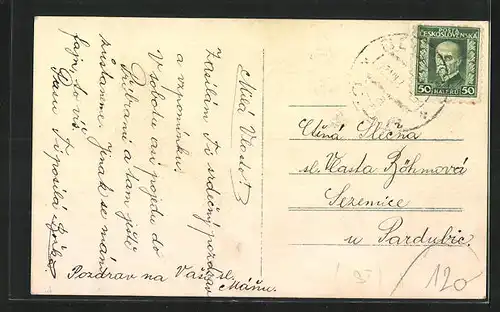 Milá Vlasto!
Zasílám Ti srdečný pozdrav
a vzpomínku.
V sobotu asi pojedu do
Příbrami a tam ještě
zůstaneme. Jinak se mám
fajn, to víš.
Pusu Ti posílá
Pozdrav na Vaši sl.
Máňu.
POŠTA
ČESKOSLOVENSKÁ
50 HALÉŘŮ 50
Ctěná Slečna
sl. Vlasta Böhmová
Sezemice
u Pardubic.
120